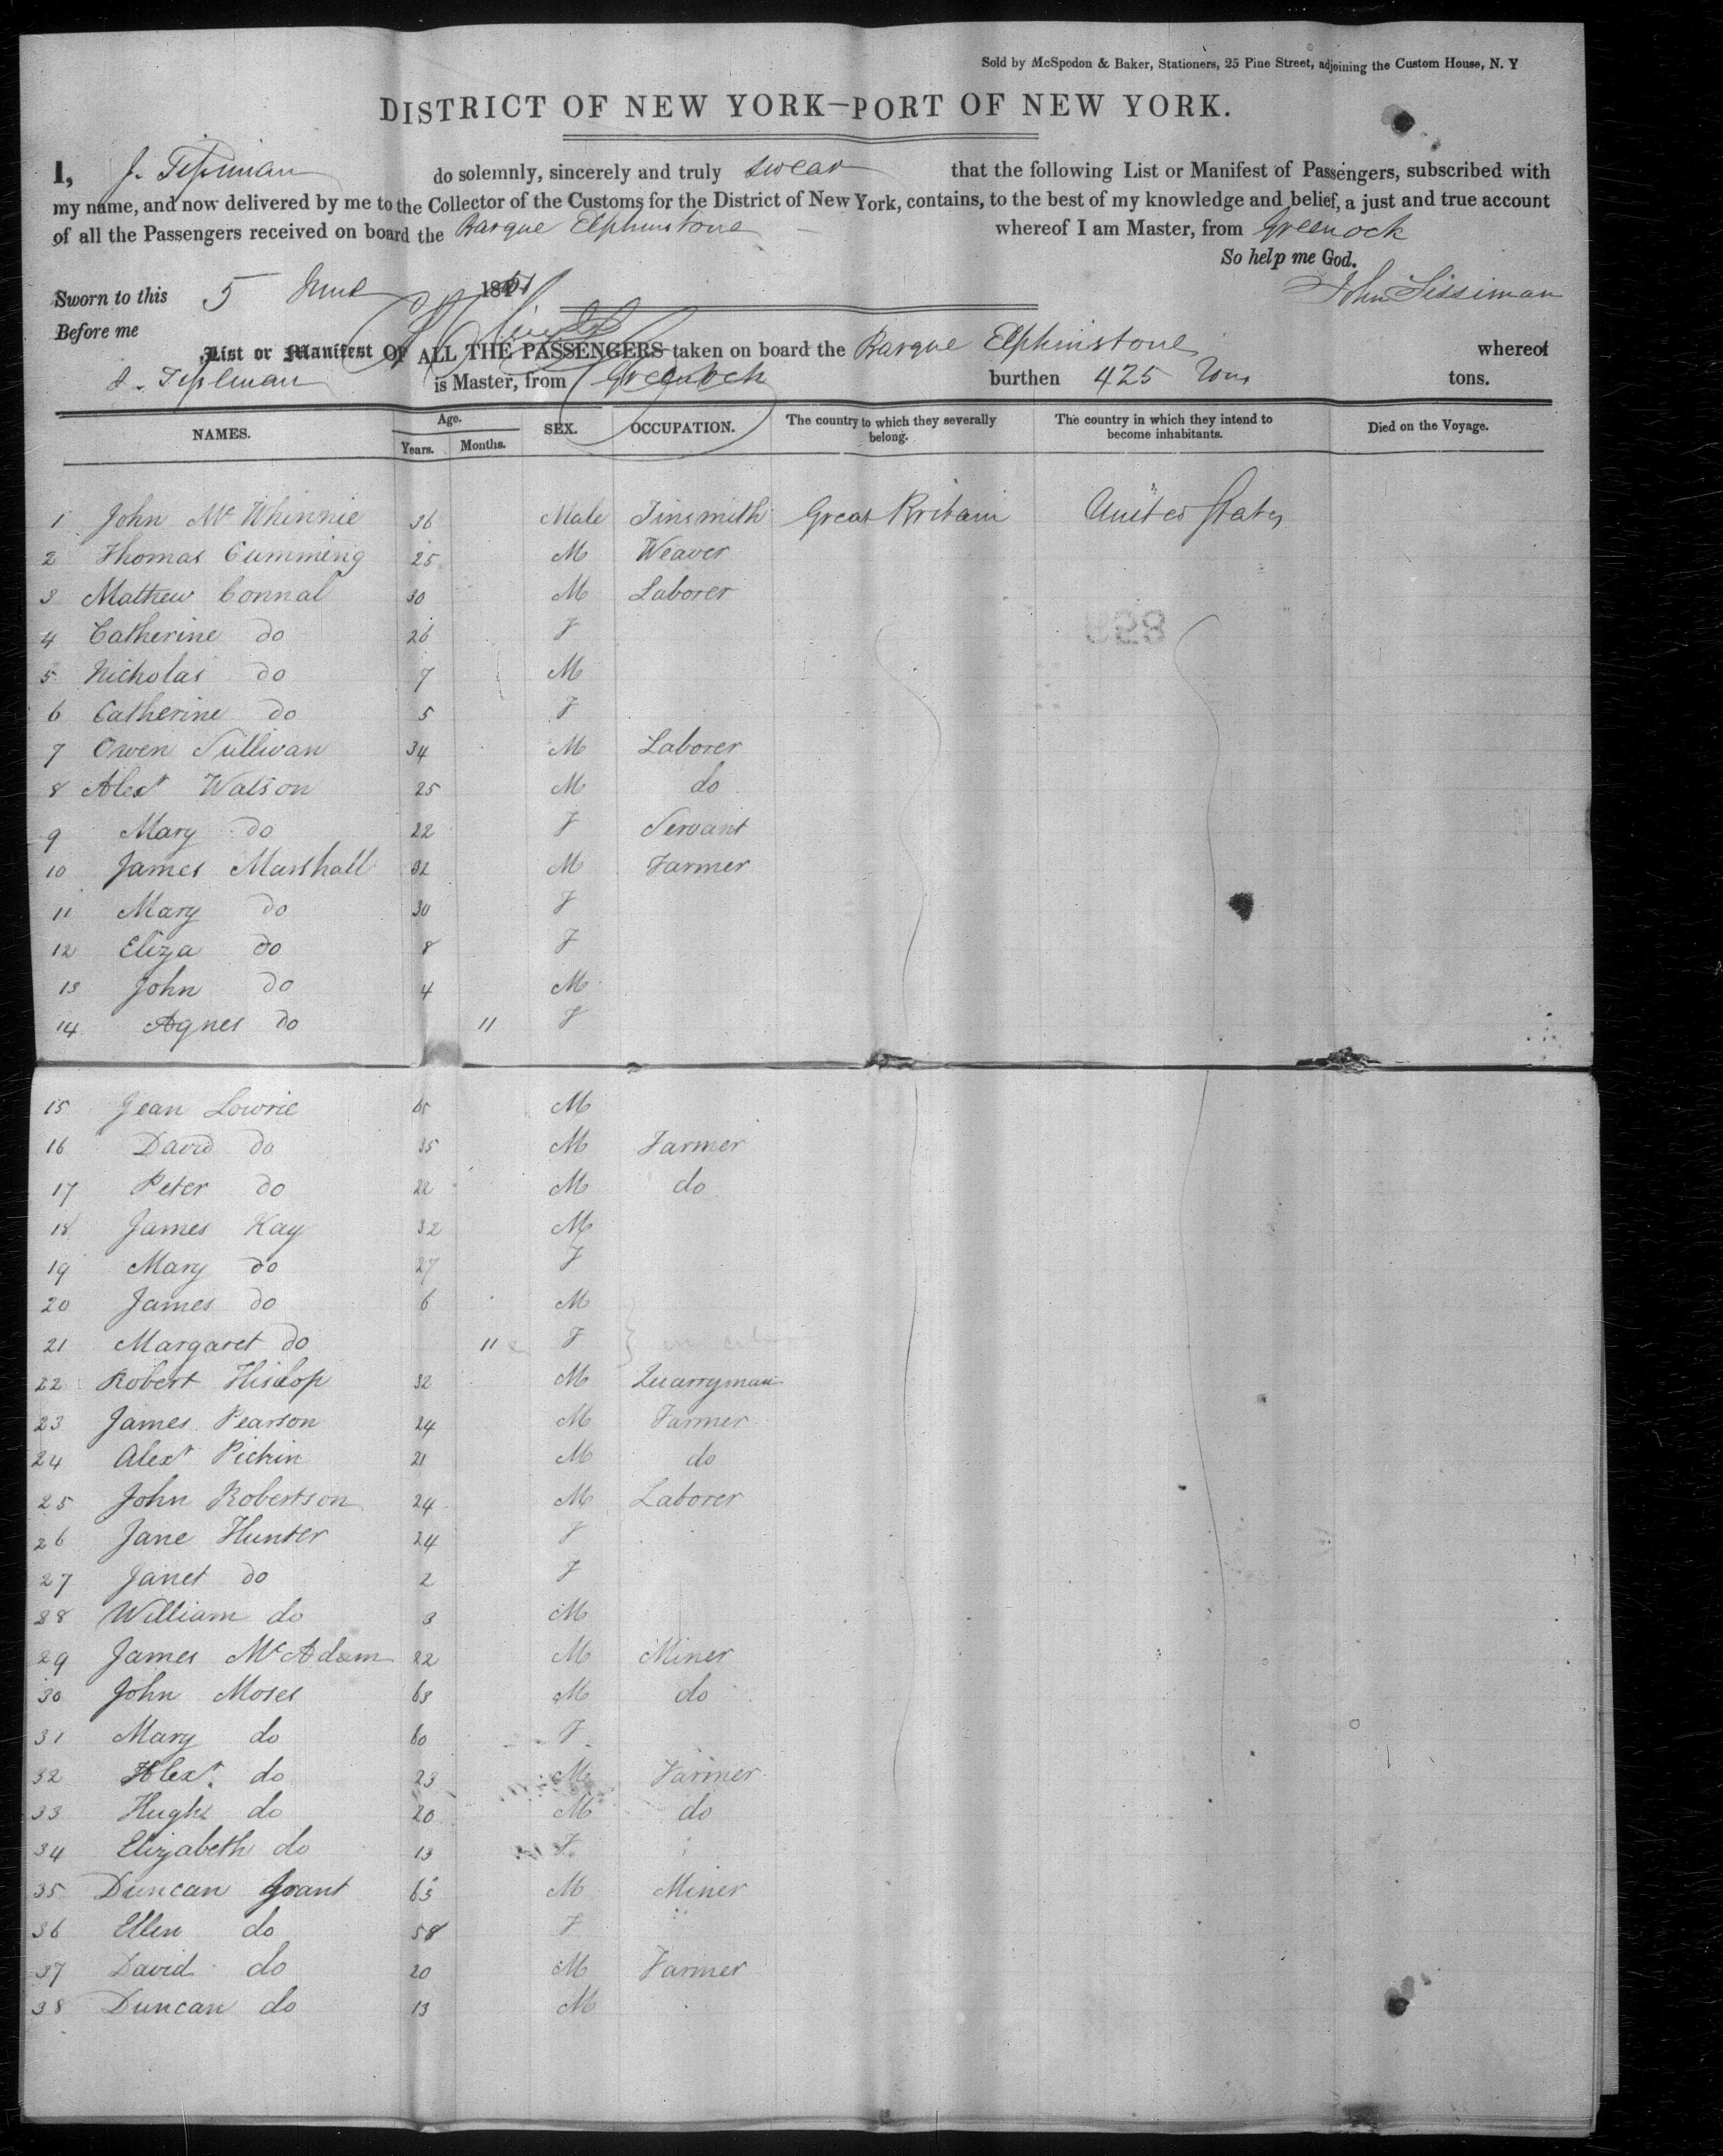 Sold by McSpedon & Baker, Stationers, 25 Pine Street, adjoining the Custom House, N. Y
DISTRICT OF NEW YORK—PORT OF NEW YORK.
I, J. do solemnly, sincerely and truly swear that the following List or Manifest of Passengers, subscribed with
my name, and now delivered by me to the Collector of the Customs for the District of New York, contains, to the best of my knowledge and belief, a just and true account
of all the Passengers received on board the Barque Elphinstone whereof I am Master, from Greenock
So help me God.
Sworn to this 5 June 1851 John Tissiman
Before me
List or Manifest OF ALL THE PASSENGERS taken on board the Barque Elphinstone whereof
is Master, from Greenock burthen 425 Tons tons.
NAMES. Age. SEX. OCCUPATION. The country to which they severally belong. The country in which they intend to become inhabitants. Died on the Voyage.
Years. Months.
1 John Mc Whinnie 36 Male Tinsmith Great Britain United States
2 Thomas Cumming 25 M Weaver
3 Mathew Connal 30 M Laborer
4 Catherine do 26 F
5 Nicholas do 7 M
6 Catherine do 5 F
7 Owen Sullivan 34 M Laborer
8 Alexr Watson 25 M do
9 Mary do 22 F Servant
10 James Marshall 32 M Farmer
11 Mary do 30 F
12 Eliza do 8 F
13 John do 4 M
14 Agnes do 11 F
15 Jean Lowrie 65 M
16 David do 35 M Farmer
17 Peter do 22 M do
18 James Kay 32 M
19 Mary do 27 F
20 James do 6 M
21 Margaret do 11 F
22 Robert Hislop 32 M Quarryman
23 James Pearson 24 M Farmer
24 Alexr Pickin 21 M do
25 John Robertson 24 M Laborer
26 Jane Hunter 24 F
27 Janet do 2 F
28 William do 3 M
29 James McAdam 22 M Miner
30 John Moses 63 M do
31 Mary do 60 F
32 Alexr do 23 M Farmer
33 Hugh do 20 M do
34 Elizabeth do 13 F
35 Duncan Grant 63 M Miner
36 Ellen do 58 F
37 David do 20 M Farmer
38 Duncan do 13 M